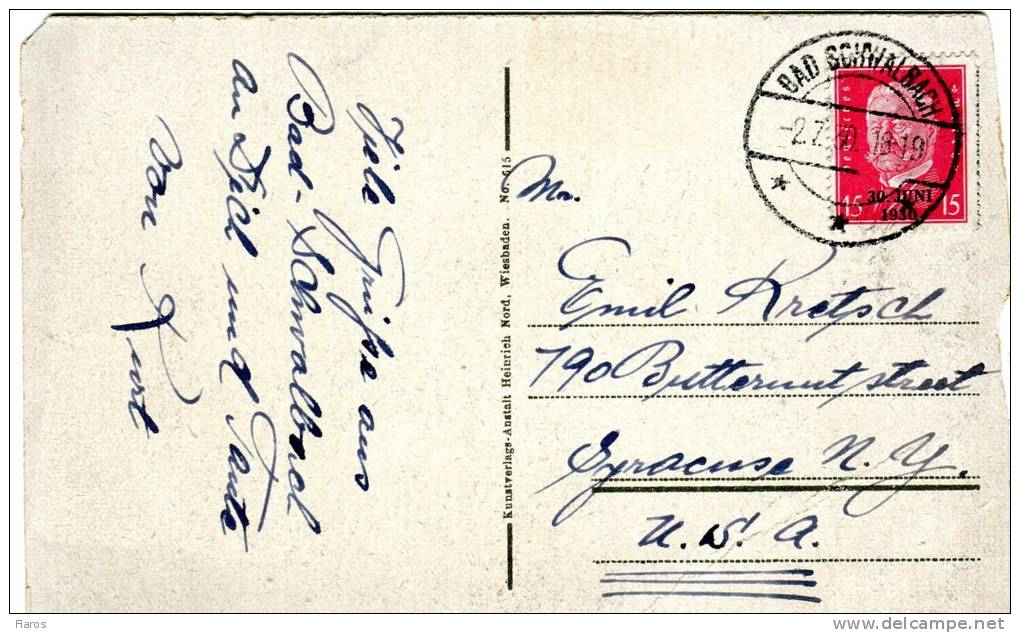 Viele Grüße aus
Bad-Schwalbach
an Dich und Tante
von Kurt
Kunstverlags-Anstalt Heinrich Nord, Wiesbaden. No. 515
BAD SCHWALBACH
-2.7.30. 18-19
30. JUNI
1930
15 15
Mr.
Emil Kretsch
790 Butternut street
Syracuse N. Y.
U. S. A.
Fiaros
delcampe.net